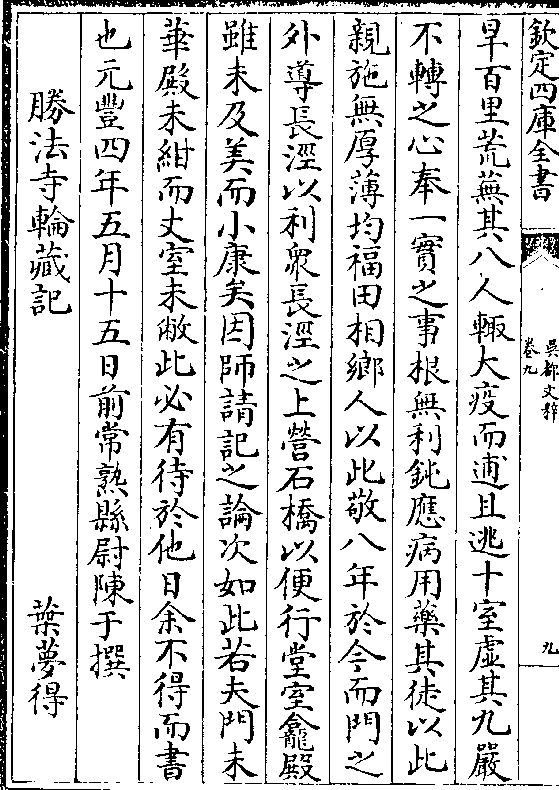 欽定四庫全書
吳都文粹
卷九
九
旱百里荒蕪其八人輙大疫而逋且逃十室虛其九嚴
不轉之心奉一實之事根無利鈍應病用藥其徒以此
親施無厚薄均福田相鄉人以此敬八年於今而門之
外導長涇以利衆長涇之上營石橋以便行堂室龕殿
雖未及美而小康矣因師請記之論次如此若夫門未
華殿未紺而丈室未敞此必有待於他日余不得而書
也元豐四年五月十五日前常熟縣尉陳于撰
勝法寺輪藏記 葉夢得